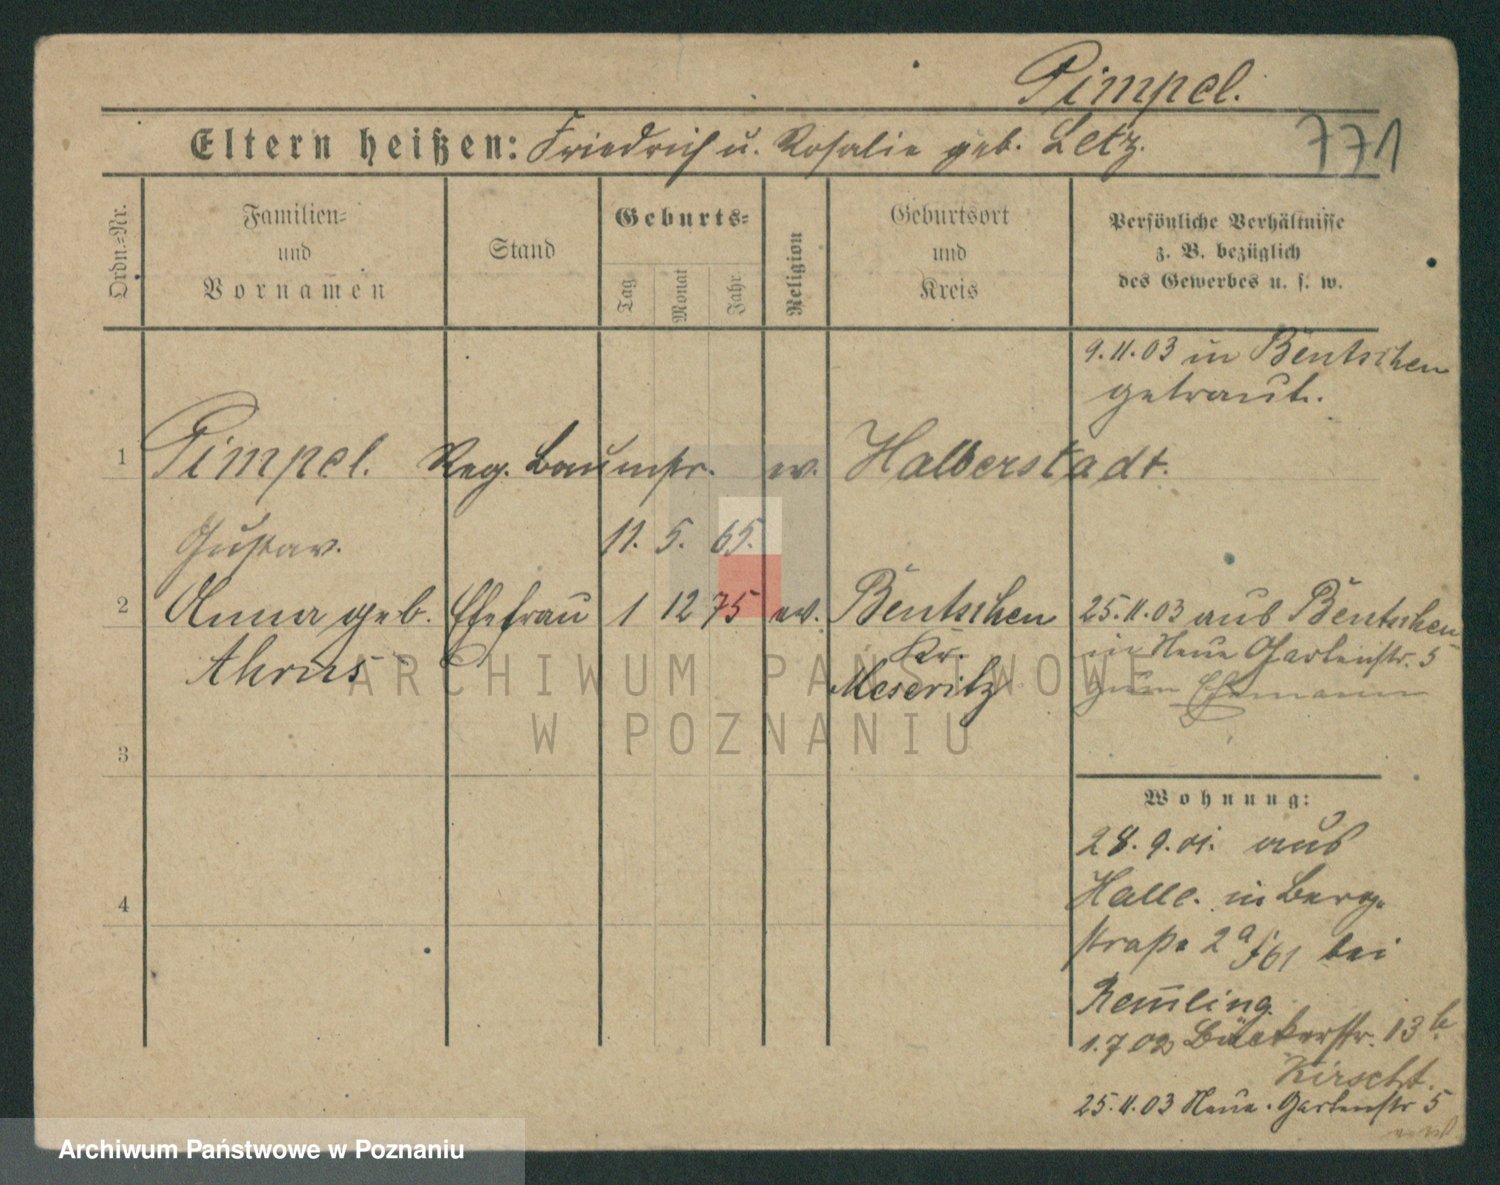 Pimpel.
Eltern heißen: Friedrich u. Rosalie geb. Letz.
771
Ordn.=Nr.
Familien=
und
Vornamen
Stand
Geburts=
Tag
Monat
Jahr
Religion
Geburtsort
und
Kreis
Persönliche Verhältnisse
z. B. bezüglich
des Gewerbes u. s. w.
9.11.03 in Bentschen
getraut.
1 Pimpel. Reg. Baumstr. ev. Halberstadt.
Gustav. 11. 5. 65.
2 Anna geb. Ehefrau 1 12 75 ev. Bentschen
Ahrns Kr.
Meseritz
25.11.03 aus Bentschen
in Neue Gartenstr. 5
zum Ehemann
3
4
Wohnung:
28.9.01. aus
Halle. in Berg-
straße 2a bei
Remling
1.7 02 Bäckerstr. 13b
Kirscht.
25.11.03 Neue Gartenstr 5
ARCHIWUM PAŃSTWOWE
W POZNANIU
Archiwum Państwowe w Poznaniu